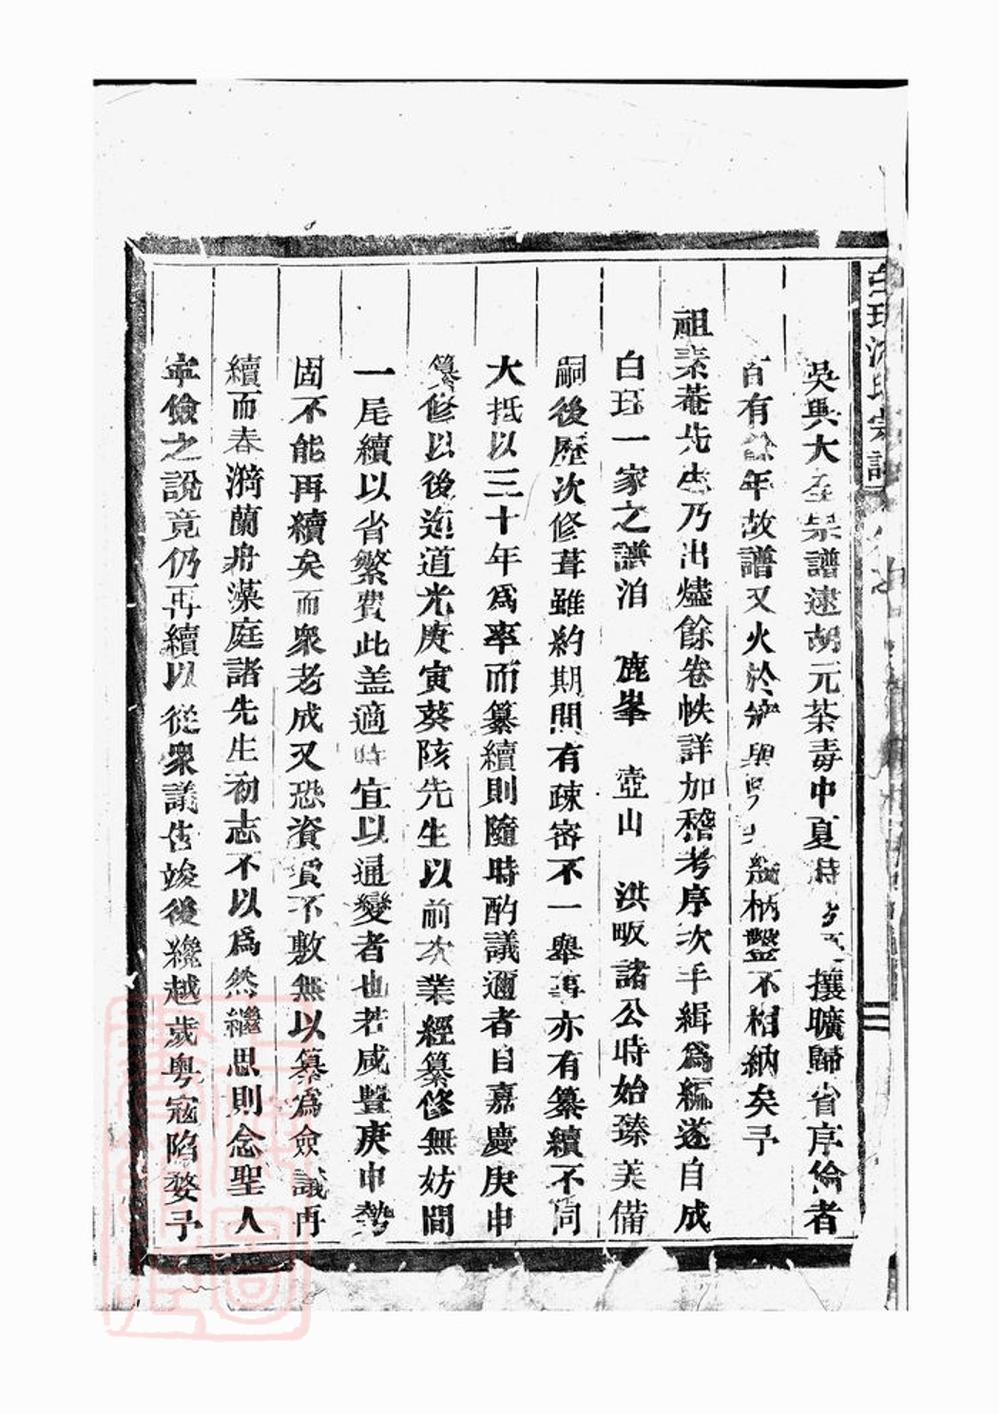 吳興大全宗譜逮胡元荼毒中夏時攘曠歸省序倫者
百有餘年故譜又火於興枘鑿不相納矣予
祖素菴先生乃出燼餘卷帙詳加稽考序次手緝為編遂自成
白珏一家之譜洎　鹿峯　壺山　洪畈諸公時始臻美備
嗣後歷次修葺雖約期間有疎密不一舉事亦有纂續不同
大抵以三十年為率而纂續則隨時酌議邇者自嘉慶庚申
纂修以後迨道光庚寅葵陔先生以前次業經纂修無妨間
一尾續以省繁費此盖適時宜以通變者也若咸豐庚申勢
固不能再續矣而衆老成又恐資貲不敷無以纂為僉議再
續而春漪蘭舟藻庭諸先生初志不以為然繼思則念聖人
寧儉之說竟仍再續以從衆議告竣後纔越歲粤寇陷婺予
沈氏宗譜